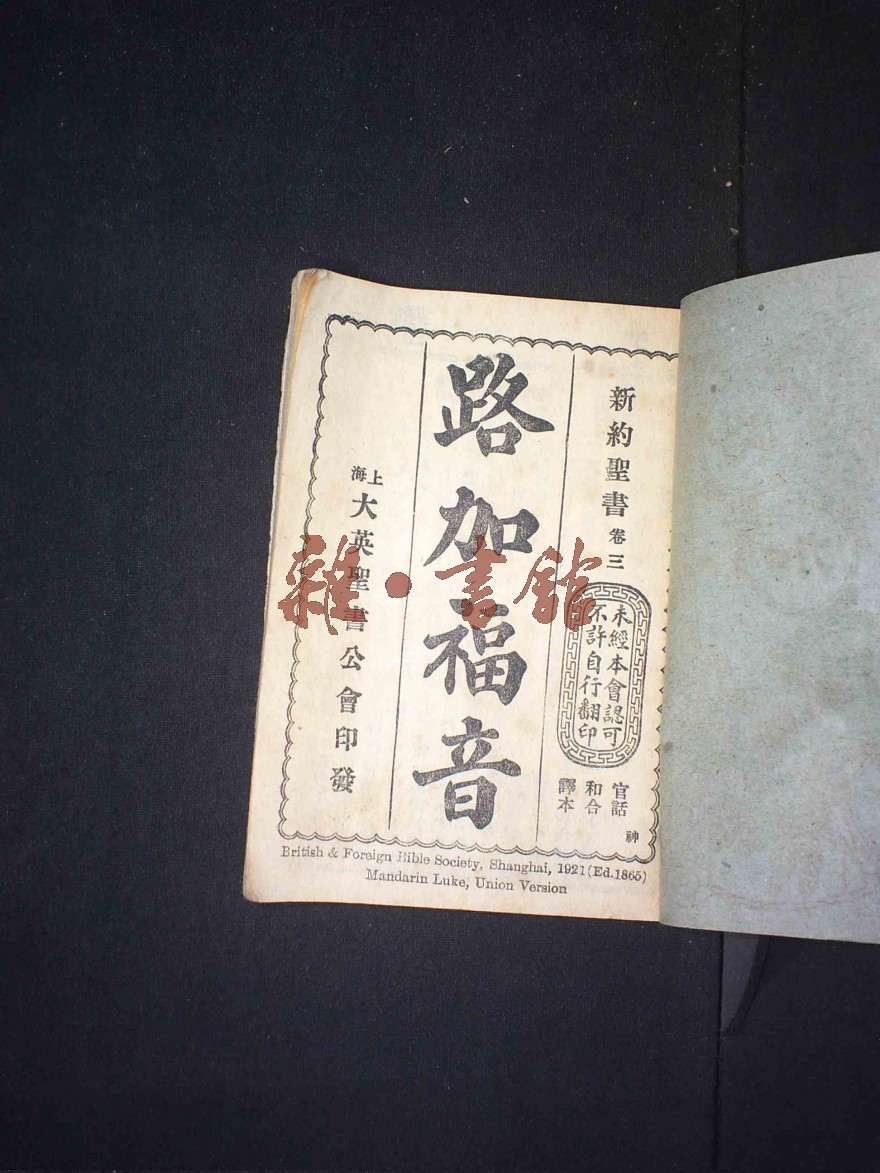 新約聖書 卷三
未經本會認可
不許自行翻印
官話
和合
譯本
神
路加福音
上海 大英聖書公會印發
British & Foreign Bible Society, Shanghai, 1921 (Ed. 1865)
Mandarin Luke, Union Version
雜·書館